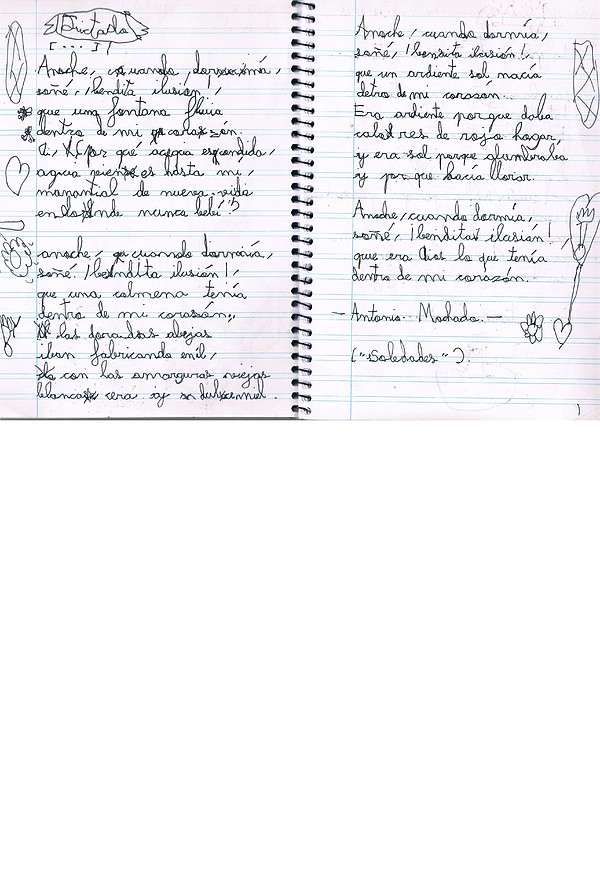 Dictado
[....]
Anoche, cuando dormía,
soñé, ¡bendita ilusión!,
que una fontana fluia
dentro de mi corazón.
por qué acequia escondida,
agua vienes hasta mi,
manantial de nueva vida
en donde nunca bebí?
anoche, cuando dormía,
soñé. ¡bendita ilusión!,
que una colmena tenía
dentro de mi corasón;
las doradas abejas
iban fabricando enil,
con las amarguras viejas
blanca cera y dulce miel.
Anoche, cuando dormía,
soñé, ¡bensita ilusión!,
que un ardiente sol nacía
detro de mi corason...
Era ardiente porque daba
calores de rojo hogar,
y era sol porque alumbraba
y por que hacía llorar.
Anoche, cuando dormía,
soñé, ¡bendita ilusión!,
que era Dios lo que tenía
dentro de mi corazón.
— Antonio Machado. —
("Soledades").